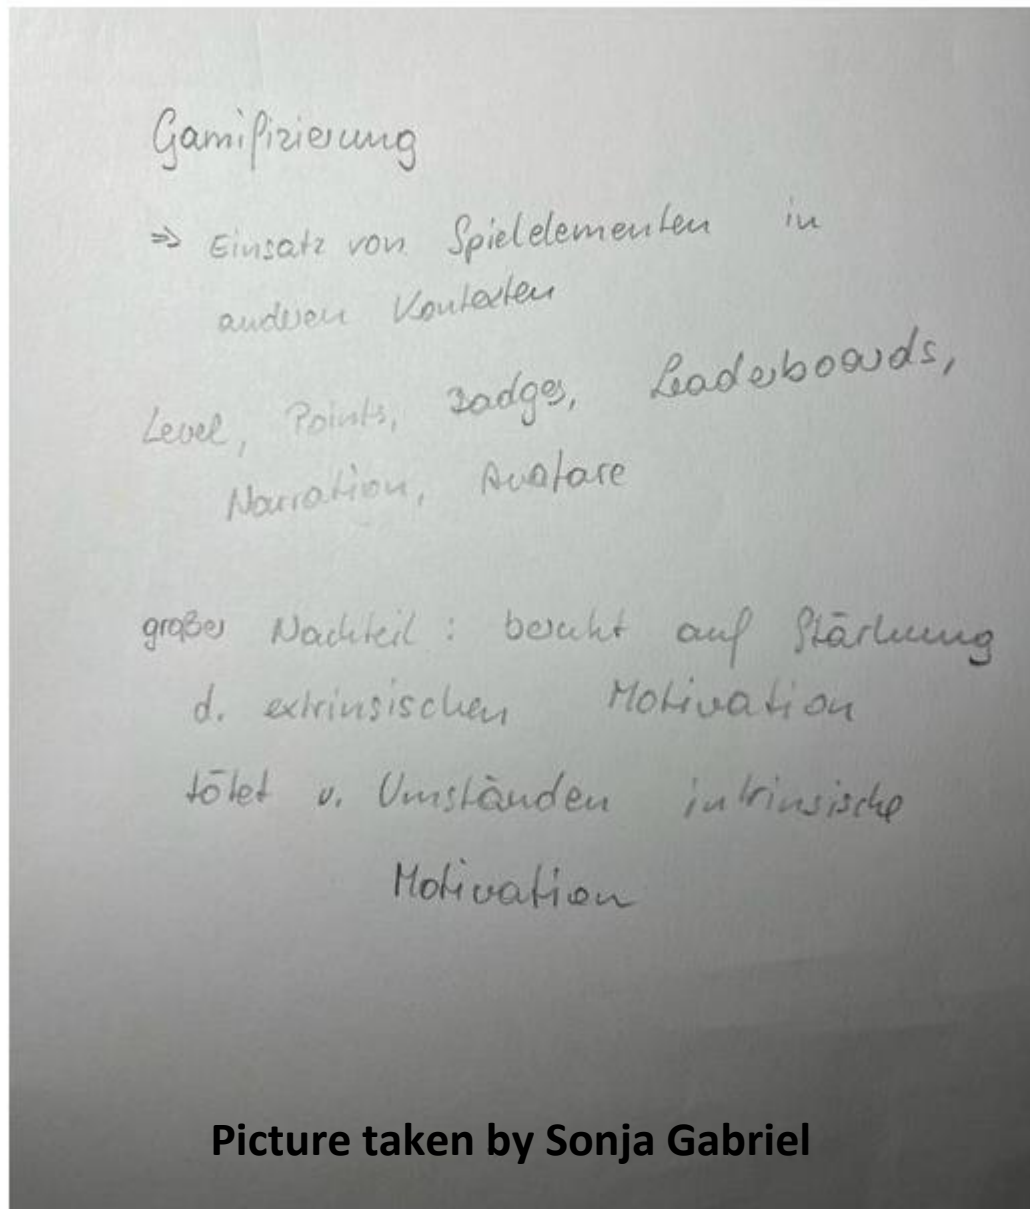 Gamifizierung
⇒ Einsatz von Spielelementen in
anderen Kontexten
Level, Points, Badges, Leaderboards,
Narration, Avatare
großer Nachteil: beruht auf Stärkung
d. extrinsischen Motivation
tötet u. Umständen intrinsische
Motivation
Picture taken by Sonja Gabriel